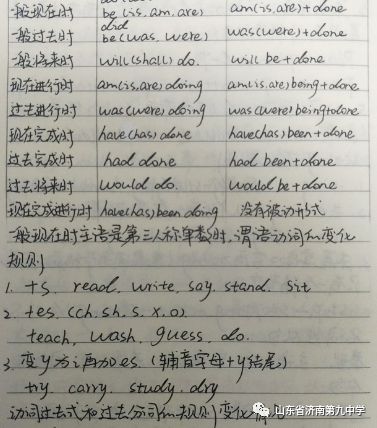 一般现在时 be (is. am. are) am(is. are)+done
did
一般过去时 be(was. were) was(were)+done
一般将来时 will(shall) do. will be+done
现在进行时 am(is. are) doing am(is. are) being+done
过去进行时 was(were) doing was(were) being+done
现在完成时 have(has) done have(has) been+done
过去完成时 had done had been+done
过去将来时 would do. would be+done
现在完成进行时 have(has) been doing 没有被动形式
一般现在时主语是第三人称单数时,谓语动词的变化
规则
1. +s. read. write. say. stand. sit
2. +es. (ch. sh. s. x. o)
teach. wash. guess. do.
3. 变y为i再加es. (辅音字母+y结尾)
try. carry. study. dry
动词过去式和过去分词的规则变化
山东省济南第九中学